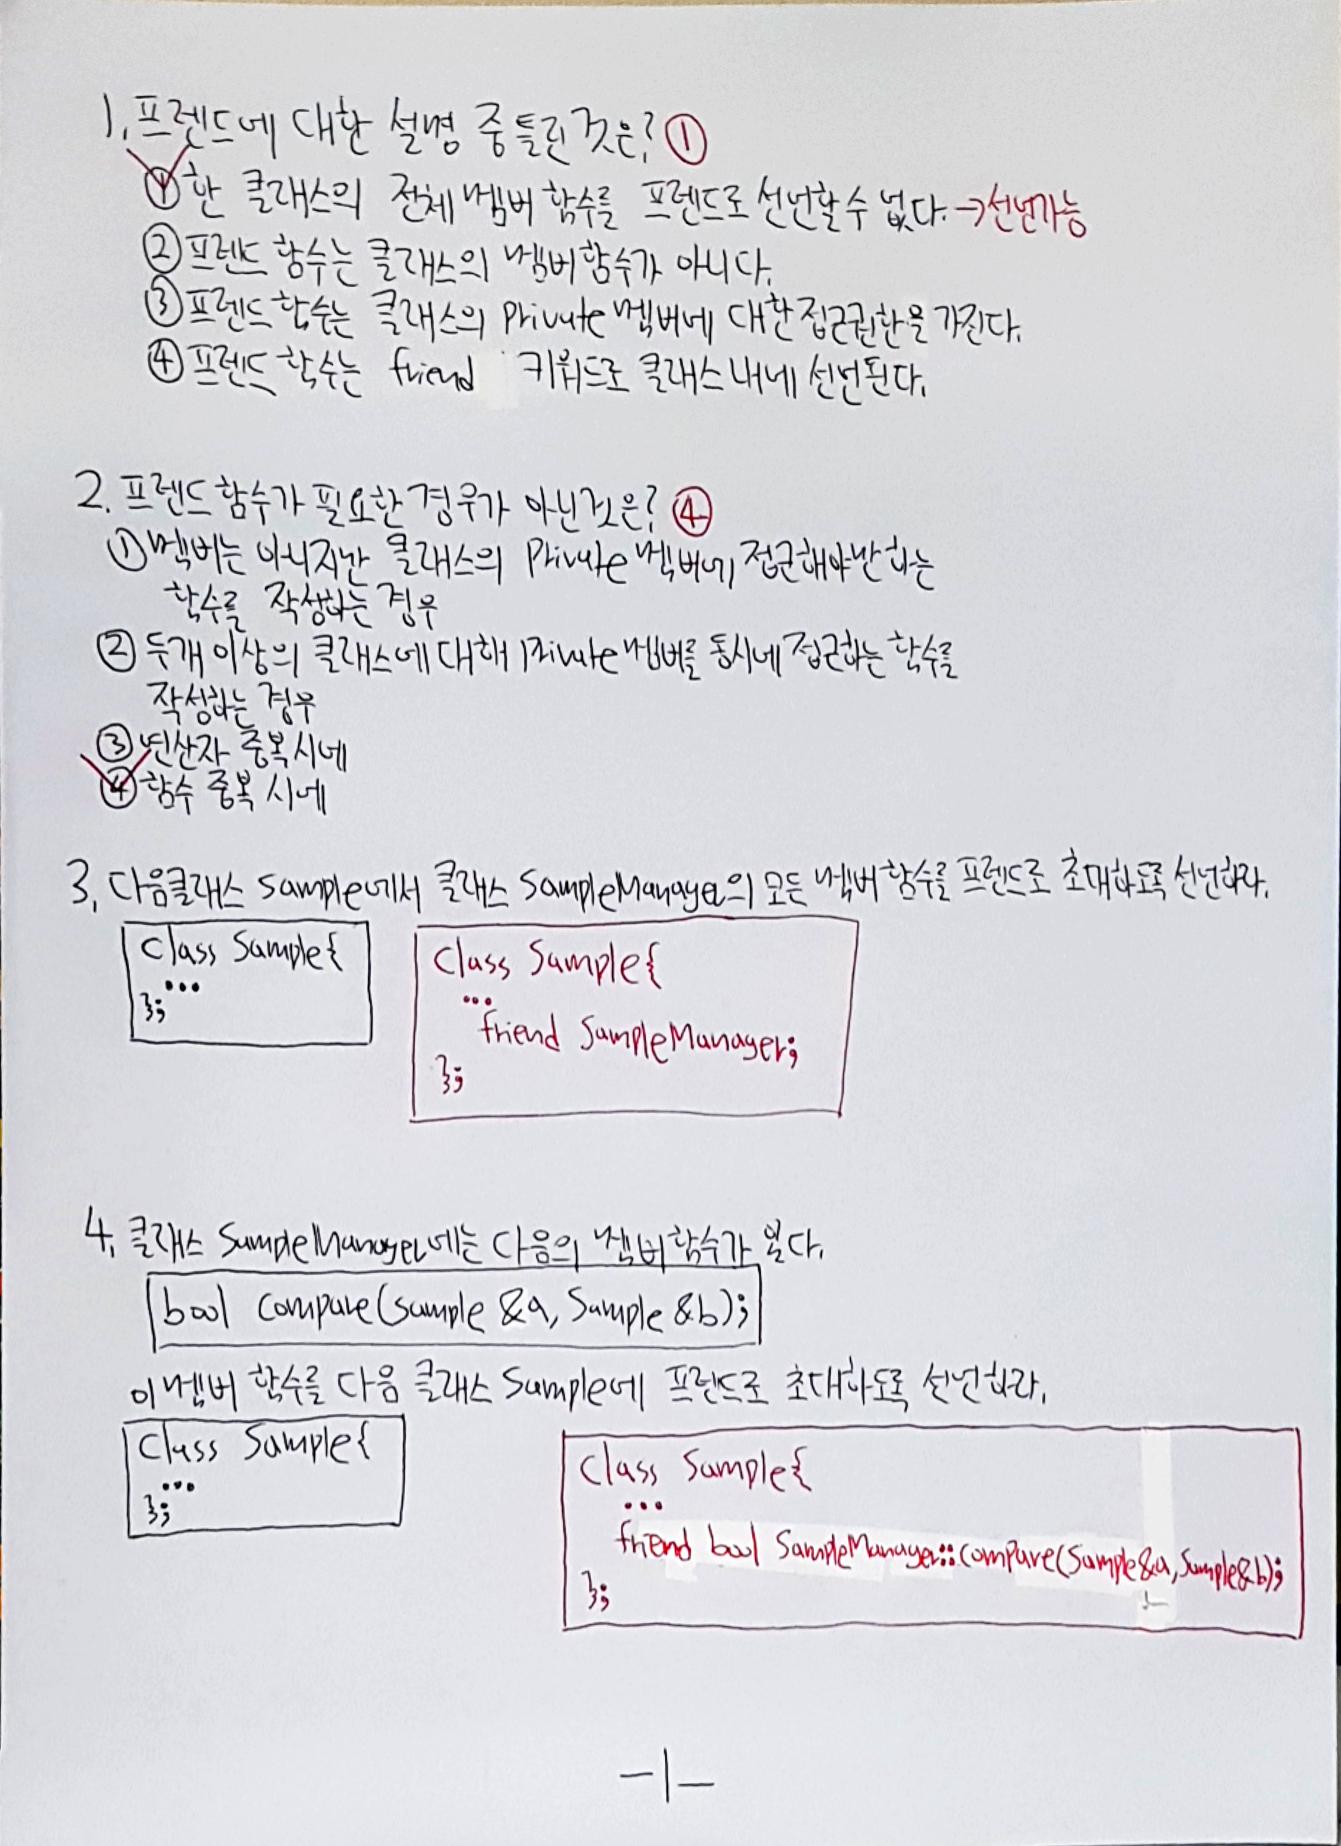 1. 프렌드에 대한 설명 중 틀린 것은? ①
① 한 클래스의 전체 멤버 함수를 프렌드로 선언할 수 없다. → 선언가능
② 프렌드 함수는 클래스의 멤버함수가 아니다.
③ 프렌드 함수는 클래스의 Private 멤버에 대한 접근권한을 가진다.
④ 프렌드 함수는 friend 키워드로 클래스 내에 선언된다.
2. 프렌드 함수가 필요한 경우가 아닌것은? ④
① 멤버는 아니지만 클래스의 Private 멤버에 접근해야만 하는
함수를 작성하는 경우
② 두개 이상의 클래스에 대해 Private 멤버를 동시에 접근하는 함수를
작성하는 경우
③ 연산자 중복 시에
④ 함수 중복 시에
3. 다음클래스 Sample에서 클래스 SampleManager의 모든 멤버 함수를 프렌드로 초대하도록 선언하라.
class Sample{
...
};
class Sample{
...
friend SampleManager;
};
4. 클래스 SampleManager에는 다음의 멤버 함수가 있다.
bool compare(sample &a, Sample &b);
이 멤버 함수를 다음 클래스 Sample에 프렌드로 초대하도록 선언하라.
class Sample{
...
};
class Sample{
...
friend bool SampleManager::compare(Sample&a, Sample&b);
};
-1-